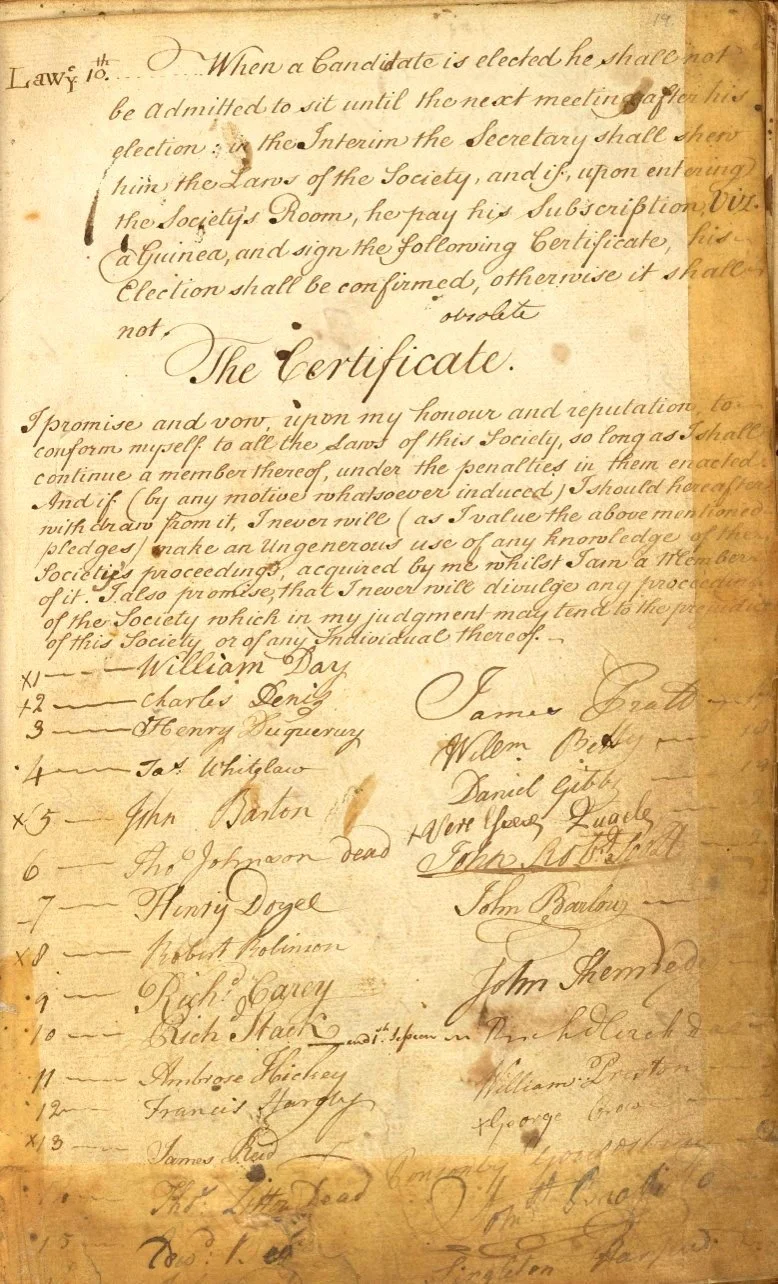 19.
Lawe. 10th. When a Candidate is elected he shall not
be admitted to sit until the next meeting after his
election: in the Interim the Secretary shall shew
him the Laws of the Society, and if, upon entering
the Society's Room, he pay his Subscription, Viz.
a Guinea, and sign the following Certificate, his
Election shall be confirmed, otherwise it shall
not.
obsolete
The Certificate.
I promise and vow, upon my honour and reputation, to
conform myself to all the Laws of this Society, so long as I shall
continue a member thereof, under the penalties in them enacted.
And if (by any motive whatsoever induced) I should hereafter
withdraw from it, I never will (as I value the above mentioned
pledges) make an Ungenerous use of any knowledge of the
Society's proceedings, acquired by me whilst I am a Member
of it. I also promise, that I never will divulge any
of the Society which in my judgment may tend to the
of this Society, or of any Individual thereof.
x1 William Day
x2 Charles Denis
3 Henry Duquerney
James Pratt
4 Jas. Whitelaw
Willm.
Daniel Gibb
x5 John Barton
x Vere
6 Thos. Johnson dead
John
7 Henry Doyle
John Barlow
x8 Robert Robinson
John
9 Richd. Carey
10 Rich. Stack
11 Ambrose Hickey
William Preston
12 Francis Hardy
x George
x13 James Reid
Ponsonby
Thos. Dead
15
Singleton